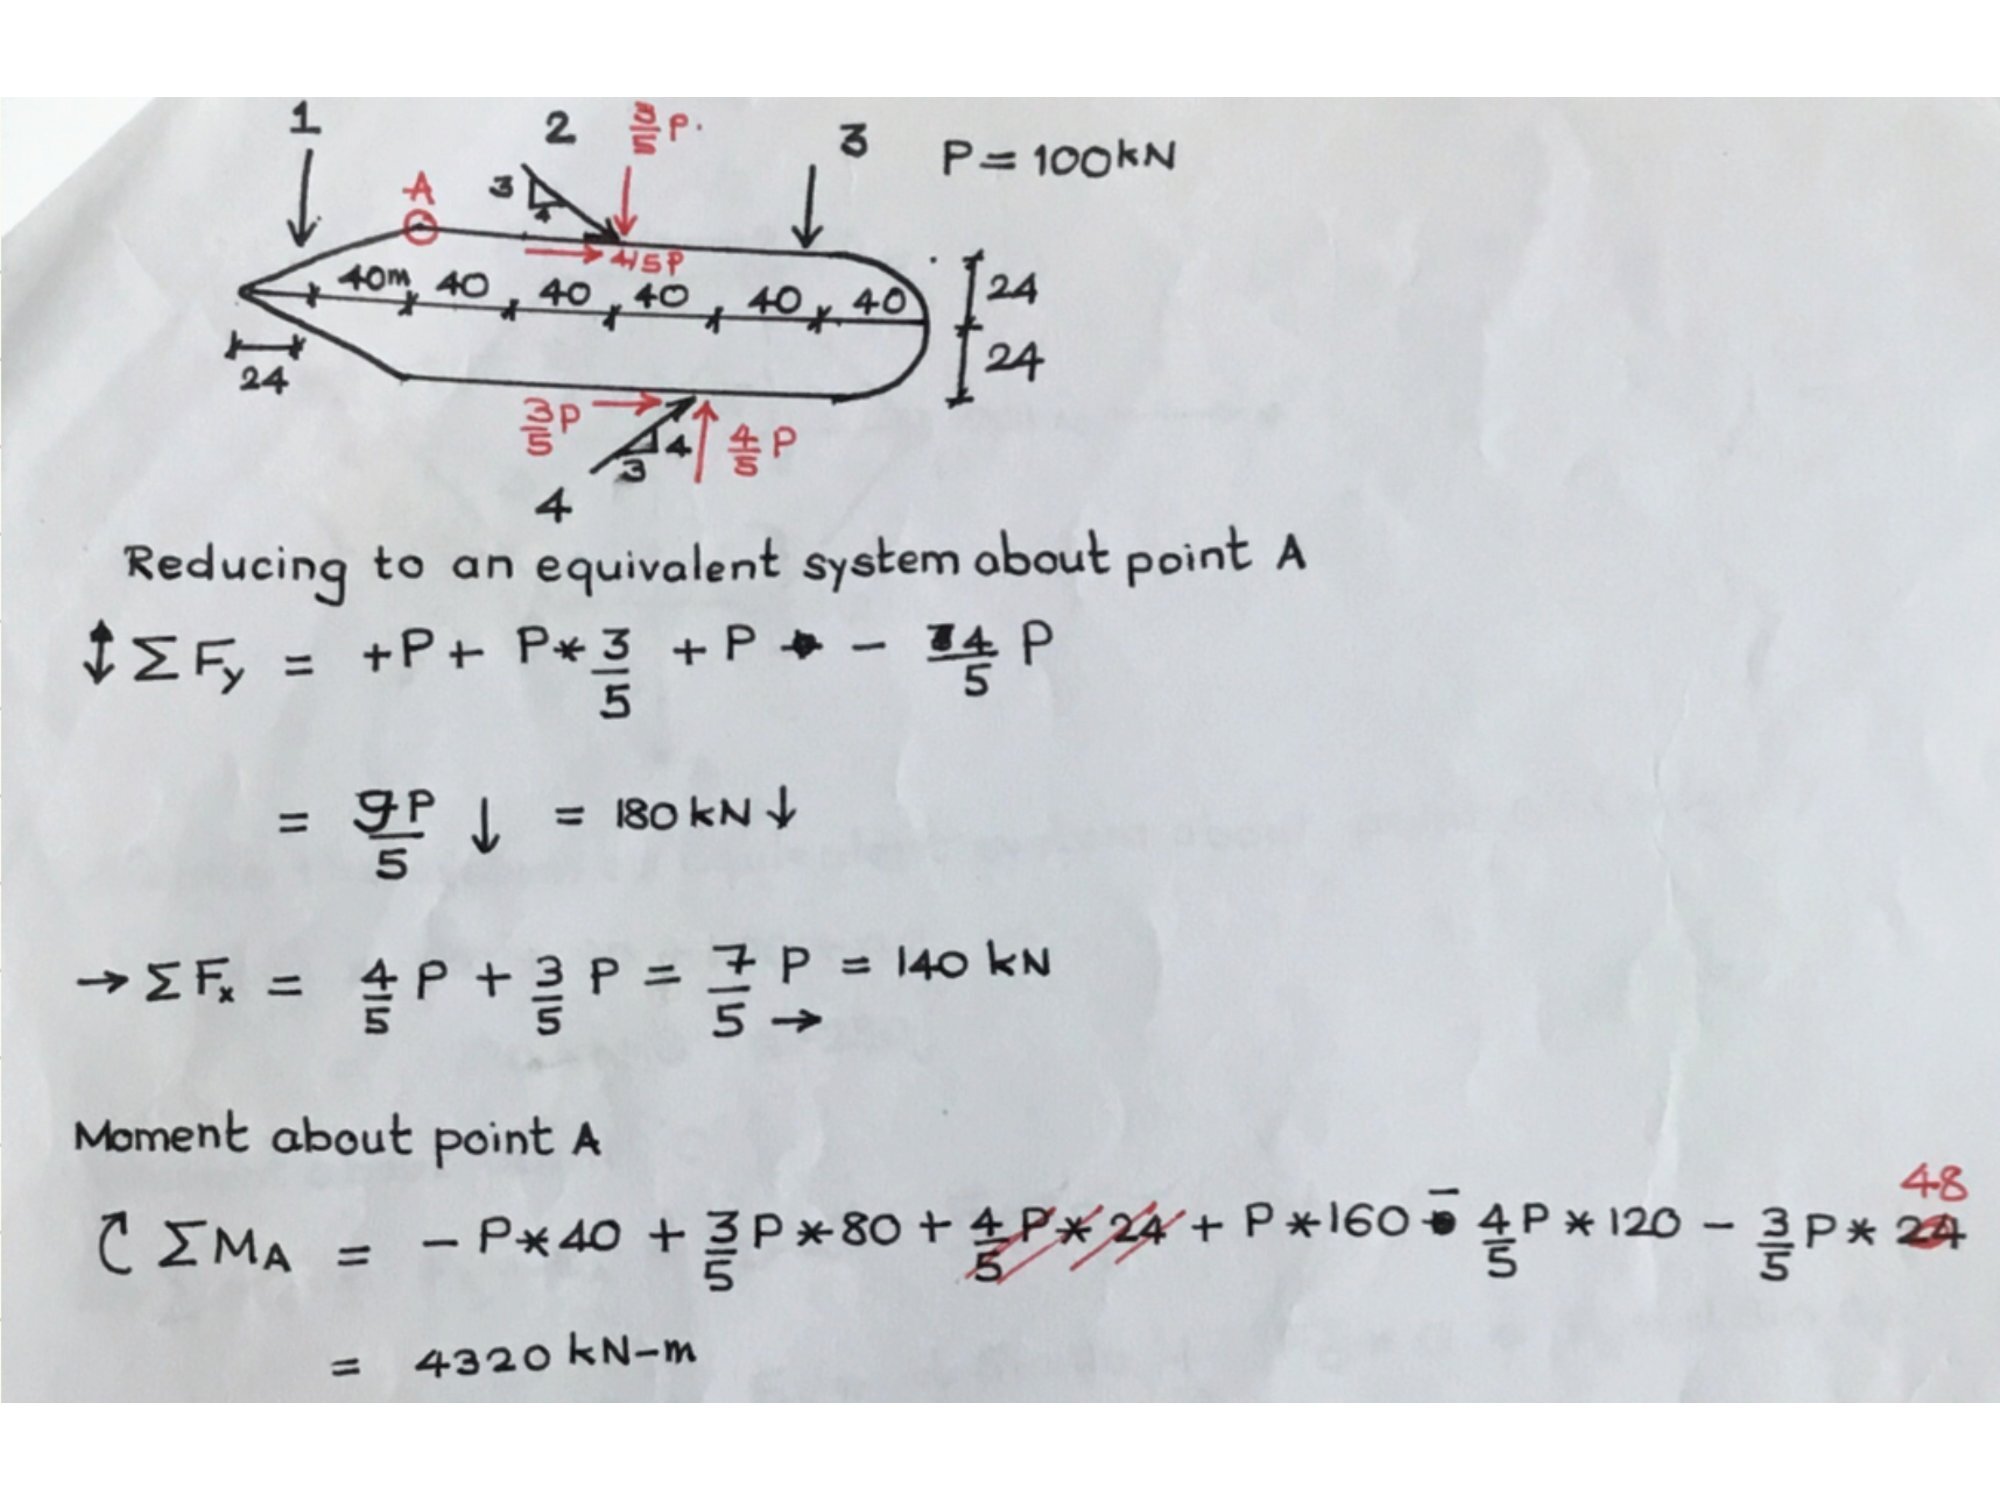 1
2
3/5 P.
3
P = 100kN
A
3
4
4/5P
40m 40 40 40 40 40
24
24
24
3/5 P
4
3
4/5 P
4
Reducing to an equivalent system about point A
↕ ΣFy = +P + P*3/5 + P - 4/5 P
= 9P/5 ↓ = 180 kN ↓
→ ΣFx = 4/5 P + 3/5 P = 7/5 P → = 140 kN
Moment about point A
ΣMA = - P*40 + 3/5 P*80 + 4/5 P* 24 + P*160 - 4/5 P*120 - 3/5 P* 24 48
= 4320 kN-m